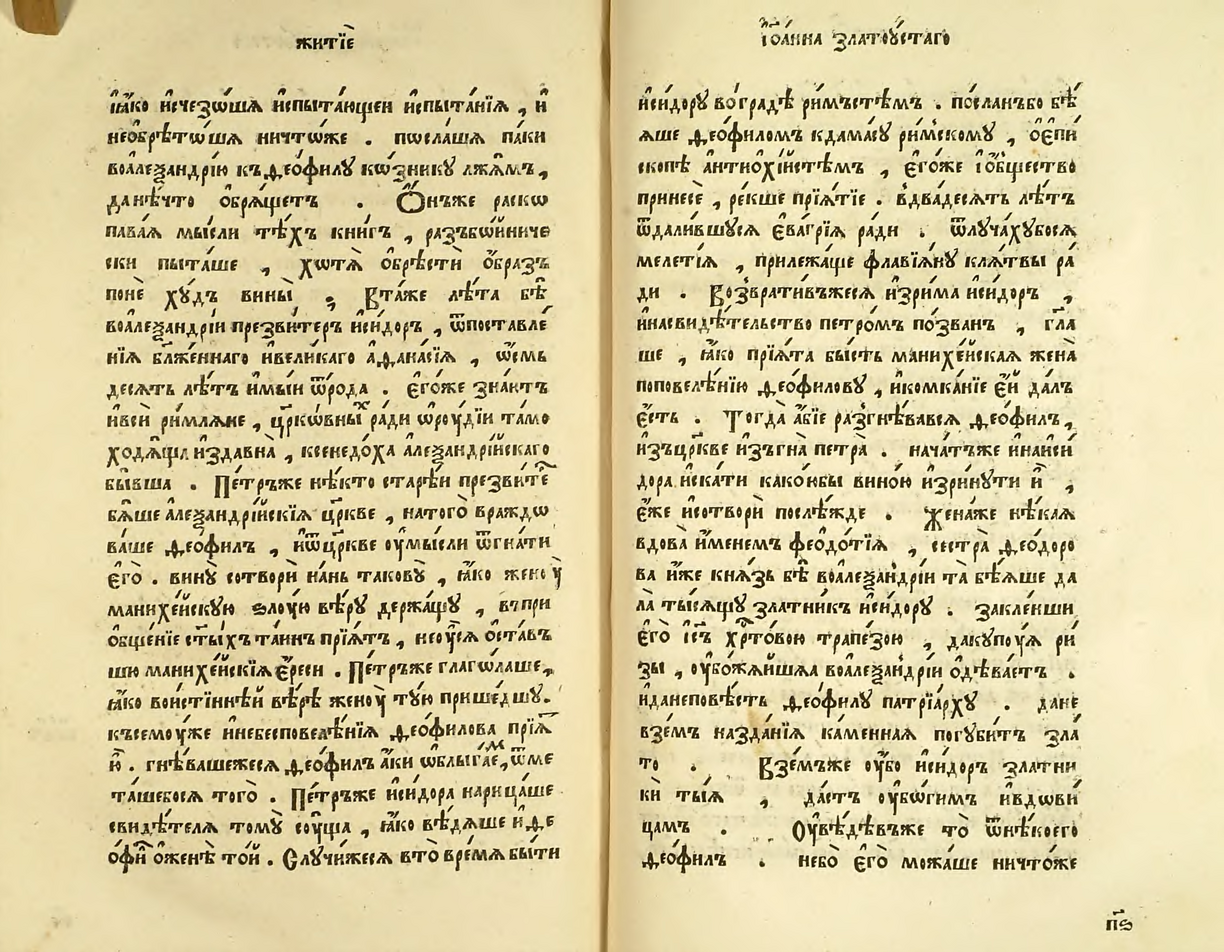 житїѐ
ꙗ҆́ко и҆счезѡ́шѧ и҆спыта́ющеи и҆спыта́нїѧ , и҆
необрѣ́тѡшѧ ничто́же . пѡсла́шѧ па́ки
воале́ѯандрїю къ ѳео́филꙋ кѡ́зникꙋ лжѧ́мъ ,
данѣ́что обрѧ́щетъ . Ѻ҆́нъже раско
пава́ѧ мы́сли тѣ́хъ кни́гъ , разъбѡйниче
ски пыта́ше , хотѧ̀ ѡ҆брѣстѝ ѡ҆́бразъ
понѐ хꙋ́дъ вины̀ , Вта́же лѣ́та бѣ̀
воале́ѯандрїи презви́теръ и҆си́доръ , ѿпоставле́
нїѧ бл҃же́ннаго ивели́каго а҆ѳана́сїѧ , ѡ҆́смь
десѧ́тъ лѣ́тъ и҆мы́и ѿро́да . є҆го́же зна́ютъ
ивсѝ ри́млѧне , цр҃ко́вныⷯ ра́ди ѡ҆рꙋ́дїи та́мо
ходѧ́ща издавна̀ , ксенедо́ха але́ѯандрі́йскаго
бы́вша . Пе́тръже нѣ́кто старѣ́и презви́теⷬ
бѧ́ше але́ѯандрі́йскїѧ цр҃кве , натого̀ вра́ждѡ
ва́ше ѳео́филъ , и҆ѿцр҃кве оумы́сли ѿгна́ти
є҆го̀ . винꙋ̀ сотворѝ на́нь такову̀ , ꙗ҆́ко женоу̀
манихе́йскую ѕлоу́ю вѣ́рꙋ держа́щꙋ , въпри
ѻбще́нїе ст҃ы́хъ та́инъ прїѧ́тъ , неоу҆́сѧ ѻста́въ
шю манихе́йскїѧ є҆́реси . Пе́тръже глаго́лаше ,
ꙗ҆́ко вои́стиннѣй вѣ́рѣ женоу̀ тꙋ́ю прише́дшꙋ .
късемо́уже инебесповелѣ́нїѧ ѳео́филова прїѧ́ⷯ
ю҆̀ . гнѣ́вашежесѧ ѳео́филъ а҆́ки ѡ҆блыга́еⷨ , ѿме
та́шебосѧ того̀ . Пе́тръже и҆си́дора нарица́ше
свидѣ́телѧ томꙋ̀ со́уща , ꙗ҆́ко вѣ́дѧше и҆ ѳе
о́фиⷧ ѻженѣ̀ то́и . Слꙋчи́жесѧ вто̀ вре́мѧ бы́ти
і҆ѡа́нна златоꙋ́стаго
и҆си́дорꙋ во гра́дѣ ри́мъстѣмъ . по́сланъбо бѣ̀
ѧше ѳео́филомъ к дама́сꙋ ри́мскомꙋ , ѻ҆є҆пи́
скопѣ а҆нтиохі́йстѣмъ , є҆го́же і҆ѻ҆́бщество
принесѐ , ре́кше прїѧ́тїе . вдва́десѧть лѣ́тъ
ѿдали́вшꙋсѧ є҆ва́грїѧ ра́ди . ѿлꙋча́хꙋбосѧ
меле́тїѧ , прилежа́ще флавїѧ́нꙋ клѧ́твы ра́
ди . Возврати́въжесѧ и҆зри́ма и҆си́доръ ,
инасвидѣ́тельство петро́мъ по́званъ , гл҃а
ше , ꙗ҆́ко прїѧ́та бы́сть манихе́йскаѧ жена̀
поповелѣ́нїю ѳео́филовꙋ , икомка́нїе є҆́й да́лъ
є҆́сть . Тогда̀ а҆́бїе разгнѣ́вавсѧ ѳео́филъ ,
изъцр҃кве и҆зъгна̀ петра̀ . нача́тъже инаиси́
дора искати како́юбы вино́ю изри́нꙋти ѝ ,
є҆́же и҆сотворѝ послѣ́жде . Жена́же нѣ́каѧ
вдова̀ и҆́менемъ феодо́тїѧ , сестра̀ ѳео́доро
ва и҆́же кнѧ́зь бѣ̀ воале́ѯандрїи та̀ бѣ́ѧше да
ла̀ ты́сѧщꙋ златни́къ и҆си́дорꙋ . закле́нши
є҆го̀ і҆с҃ъ хрⷭ҇то́вою трапе́зою , дакупо́уѧ ри́
зы , оу҆бо́жѧйшаѧ воале́ѯандрїи ѻ҆дѣва́етъ .
и҆данепо́вѣсть ѳео́филꙋ патрїа́рхꙋ . да не
взе́мъ назда́нїѧ ка́меннаѧ погꙋби́тъ зла́
то . Взе́мъже оу҆́бо и҆си́доръ златни́
ки ты́ѧ , да́стъ оу҆бо́гимъ и҆вдови́
цамъ . Оу҆вѣ́дѣвъже то̀ ѿнѣ́коего
ѳео́филъ . небо̀ є҆го̀ можа́ше ничто́же
п҃ѕ